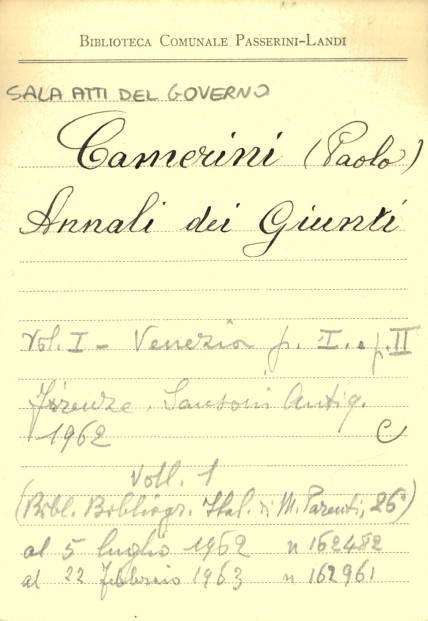 BIBLIOTECA COMUNALE PASSERINI-LANDI
SALA ATTI DEL GOVERNO
Camerini (Paolo)
Annali dei Giunti
Vol. I - Venezia p. I. e p. II
Firenze. Sansoni Antiq.
1962
C
Voll. 1
(Bibl. Bibliogr. Ital. di M. Parenti, 26°)
al 5 luglio 1962 n 162482
al 22 febbraio 1963 n 162961